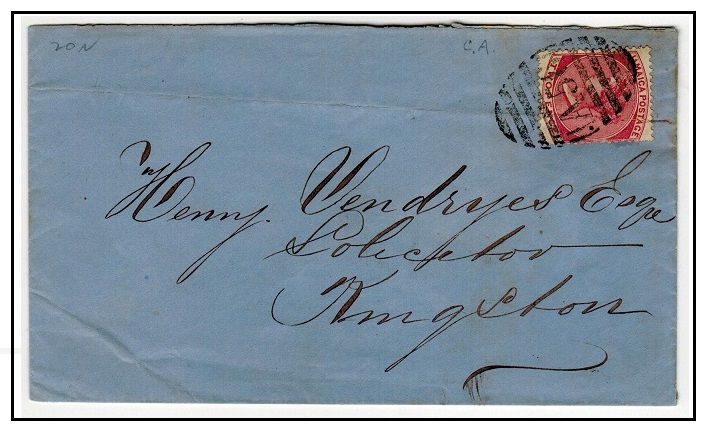 20N
C.A.
JAMAICA POSTAGE
Henry Vendryes Esqre
Solicitor
Kingston